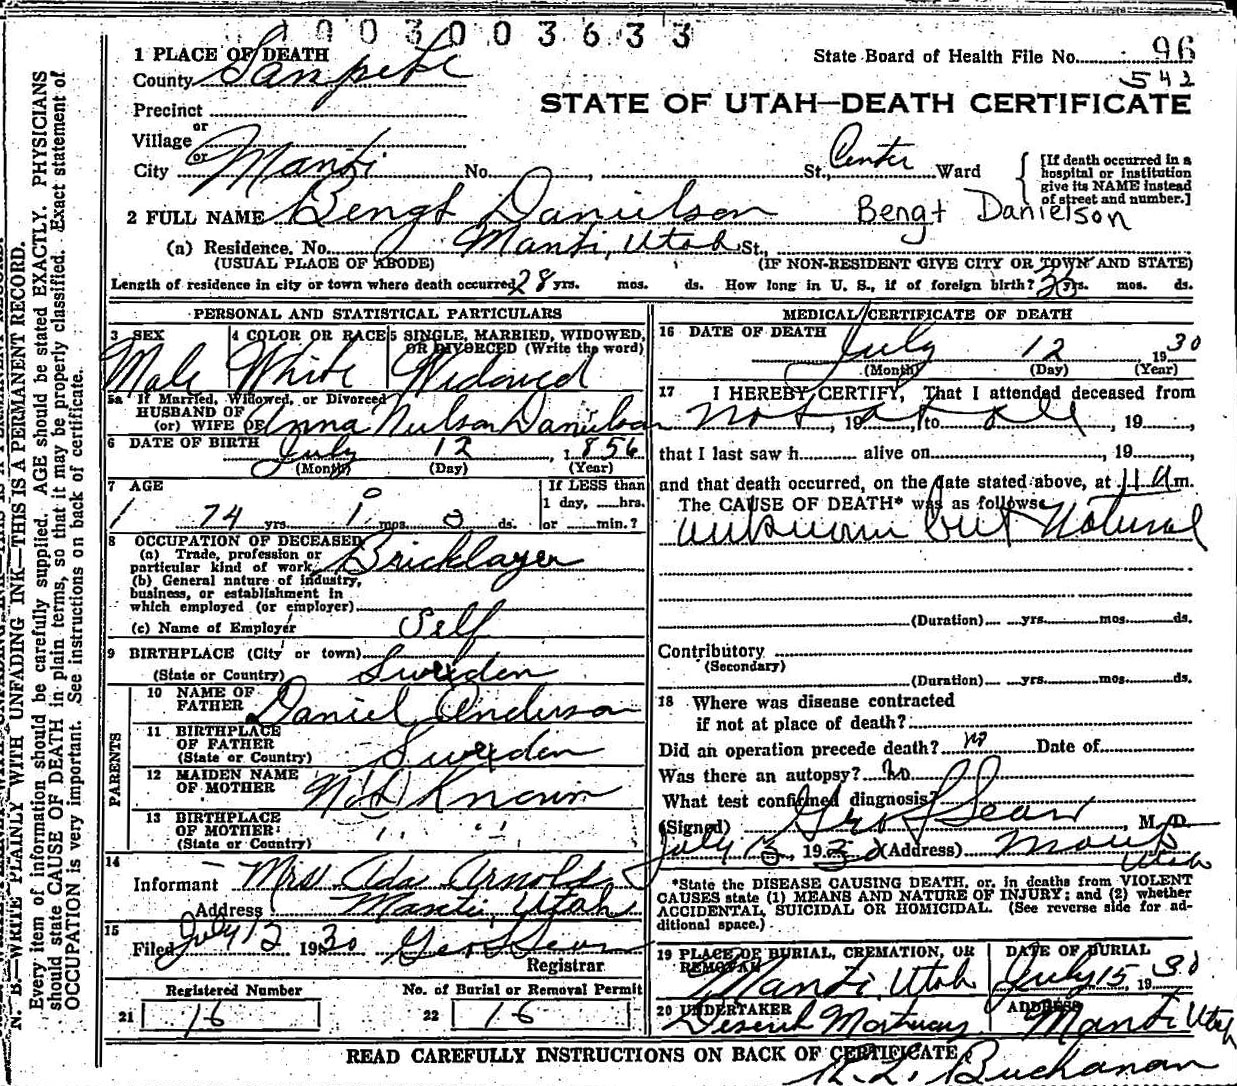 003003633
1 PLACE OF DEATH
State Board of Health File No. 96
County Sanpete
542
STATE OF UTAH—DEATH CERTIFICATE
Precinct
or
Village
or
City Manti No. , St., Center Ward
[If death occurred in a hospital or institution give its NAME instead of street and number.]
2 FULL NAME Bengt Danielson Bengt Danielson
(a) Residence. No. Manti, Utah St.,
(USUAL PLACE OF ABODE) (IF NON-RESIDENT GIVE CITY OR TOWN AND STATE)
Length of residence in city or town where death occurred 28 yrs. mos. ds. How long in U. S., if of foreign birth? yrs. mos. ds.
PERSONAL AND STATISTICAL PARTICULARS
3 SEX 4 COLOR OR RACE 5 SINGLE, MARRIED, WIDOWED, OR DIVORCED (Write the word)
Male White Widowed
5a If Married, Widowed, or Divorced
HUSBAND OF
(or) WIFE OF Anna Nielson Danielson
6 DATE OF BIRTH July 12, 1856
(Month) (Day) (Year)
7 AGE If LESS than
1 day, hrs.
74 yrs. 0 mos. 0 ds. or min.?
8 OCCUPATION OF DECEASED
(a) Trade, profession or
particular kind of work Bricklayer
(b) General nature of industry,
business, or establishment in
which employed (or employer)
(c) Name of Employer Self
9 BIRTHPLACE (City or town)
(State or Country) Sweden
PARENTS
10 NAME OF
FATHER Daniel Anderson
11 BIRTHPLACE
OF FATHER
(State or Country) Sweden
12 MAIDEN NAME
OF MOTHER Not Known
13 BIRTHPLACE
OF MOTHER
(State or Country) " "
14
Informant Mrs Ada Arnold
Address Manti, Utah
15
Filed July 12 1930 Geo L Sears
Registrar
Registered Number No. of Burial or Removal Permit
21 16 22 16
MEDICAL CERTIFICATE OF DEATH
16 DATE OF DEATH
July 12 1930
(Month) (Day) (Year)
17 I HEREBY CERTIFY, That I attended deceased from
not at all, 19 , to , 19 ,
that I last saw h alive on , 19 ,
and that death occurred, on the date stated above, at 11 a m.
The CAUSE OF DEATH* was as follows:
unknown but Natural
(Duration) yrs. mos. ds.
Contributory
(Secondary)
(Duration) yrs. mos. ds.
18 Where was disease contracted
if not at place of death?
Did an operation precede death? no Date of
Was there an autopsy? no
What test confirmed diagnosis?
(Signed) Geo L Sears, M. D.
July 13, 1930 (Address) Manti Utah
*State the DISEASE CAUSING DEATH, or, in deaths from VIOLENT
CAUSES state (1) MEANS AND NATURE OF INJURY; and (2) whether
ACCIDENTAL, SUICIDAL OR HOMICIDAL. (See reverse side for ad-
ditional space.)
19 PLACE OF BURIAL, CREMATION, OR REMOVAL DATE OF BURIAL
Manti, Utah July 15, 1930
20 UNDERTAKER ADDRESS
Deseret Mortuary Manti Utah
READ CAREFULLY INSTRUCTIONS ON BACK OF CERTIFICATE
R. L. Buchanan
N. B.—WRITE PLAINLY WITH UNFADING INK—THIS IS A PERMANENT RECORD.
Every item of information should be carefully supplied. AGE should be stated EXACTLY. PHYSICIANS
should state CAUSE OF DEATH in plain terms, so that it may be properly classified. Exact statement of
OCCUPATION is very important. See instructions on back of certificate.